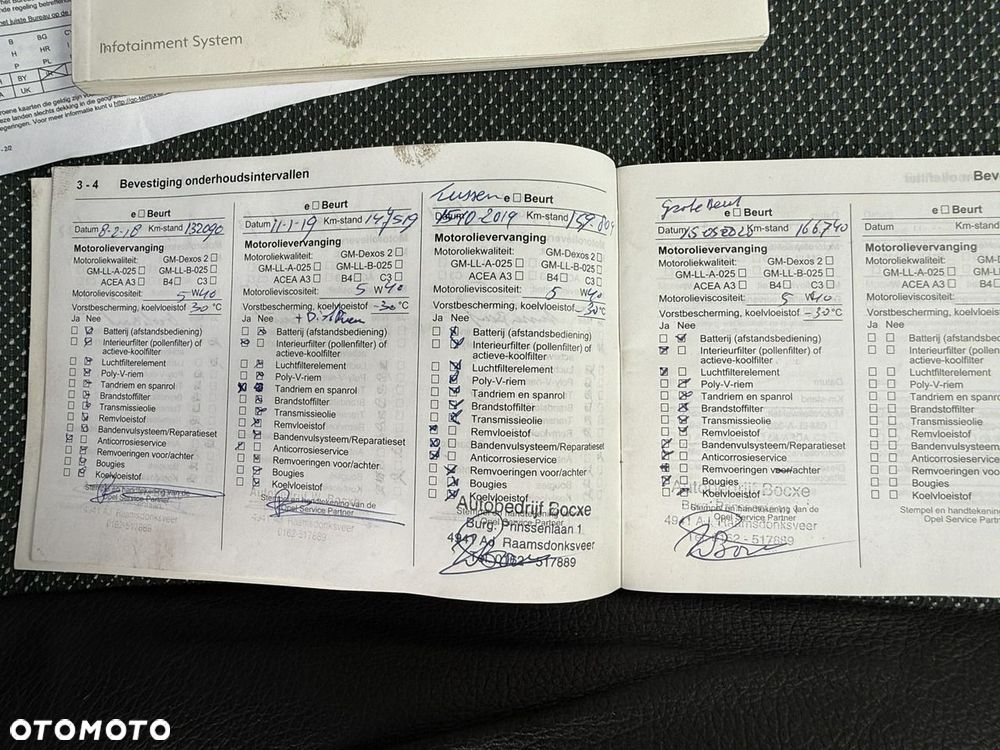 Infotainment System
3 - 4 Bevestiging onderhoudsintervallen
e □ Beurt
Datum 8-2-18 Km-stand 132090
Motorolievervanging
Motoroliekwaliteit: GM-Dexos 2 □
GM-LL-A-025 □ GM-LL-B-025 □
ACEA A3 □ B4 □ C3 □
Motorolieviscositeit: 5 W 40
Vorstbescherming, koelvloeistof 30 °C
Ja Nee
Batterij (afstandsbediening)
Interieurfilter (pollenfilter) of
actieve-koolfilter
Luchtfilterelement
Poly-V-riem
Tandriem en spanrol
Brandstoffilter
Transmissieolie
Remvloeistof
Bandenvulsysteem/Reparatieset
Anticorrosieservice
Remvoeringen voor/achter
Bougies
Koelvloeistof
Stempel en handtekening van de
Opel Service Partner
0162-517889
e □ Beurt
Datum 11-1-19 Km-stand
Motorolievervanging
Motoroliekwaliteit: GM-Dexos 2 □
GM-LL-A-025 □ GM-LL-B-025 □
ACEA A3 □ B4 □ C3 □
Motorolieviscositeit: 5 W 40
Vorstbescherming, koelvloeistof -30 °C
Ja Nee
Batterij (afstandsbediening)
Interieurfilter (pollenfilter) of
actieve-koolfilter
Luchtfilterelement
Poly-V-riem
Tandriem en spanrol
Brandstoffilter
Transmissieolie
Remvloeistof
Bandenvulsysteem/Reparatieset
Anticorrosieservice
Remvoeringen voor/achter
Bougies
Koelvloeistof
Stempel en handtekening van de
Opel Service Partner
4941 AJ Raamsdonksveer
0162-517889
Tussen e □ Beurt
Datum 15-10-2019 Km-stand
Motorolievervanging
Motoroliekwaliteit: GM-Dexos 2 □
GM-LL-A-025 □ GM-LL-B-025 □
ACEA A3 □ B4 □ C3 □
Motorolieviscositeit: 5 W 40
Vorstbescherming, koelvloeistof -30 °C
Ja Nee
Batterij (afstandsbediening)
Interieurfilter (pollenfilter) of
actieve-koolfilter
Luchtfilterelement
Poly-V-riem
Tandriem en spanrol
Brandstoffilter
Transmissieolie
Remvloeistof
Bandenvulsysteem/Reparatieset
Anticorrosieservice
Remvoeringen voor/achter
Bougies
Koelvloeistof
Autobedrijf Bocxe
Burg. Prinssenlaan 1
4941 AJ Raamsdonksveer
Tel 0162 - 517889
Grote Beurt
e □ Beurt
Datum Km-stand 166740
Motorolievervanging
Motoroliekwaliteit: GM-Dexos 2 □
GM-LL-A-025 □ GM-LL-B-025 □
ACEA A3 □ B4 □ C3 □
Motorolieviscositeit: 5 W 40
Vorstbescherming, koelvloeistof -30 °C
Ja Nee
Batterij (afstandsbediening)
Interieurfilter (pollenfilter) of
actieve-koolfilter
Luchtfilterelement
Poly-V-riem
Tandriem en spanrol
Brandstoffilter
Transmissieolie
Remvloeistof
Bandenvulsysteem/Reparatieset
Anticorrosieservice
Remvoeringen voor/achter
Bougies
Koelvloeistof
Stempel en handtekening van de
Opel Service Partner
Autobedrijf Bocxe
4941 AJ Raamsdonksveer
Tel 0162 - 517889
Bev
e □ Beurt
Datum Km-stand
Motorolievervanging
Motoroliekwaliteit: GM-D
GM-LL-A-025 □ GM-LL-B
ACEA A3 □ B4 □
Motorolieviscositeit:
Vorstbescherming, koelvloeistof
Ja Nee
Batterij (afstandsbedien
Interieurfilter (pollenfilte
actieve-koolfilter
Luchtfilterelement
Poly-V-riem
Tandriem en spanrol
Brandstoffilter
Transmissieolie
Remvloeistof
Bandenvulsysteem/Rep
Anticorrosieservice
Remvoeringen voor/ach
Bougies
Koelvloeistof
Stempel en handteken
Opel Service Partner
OTOMOTO